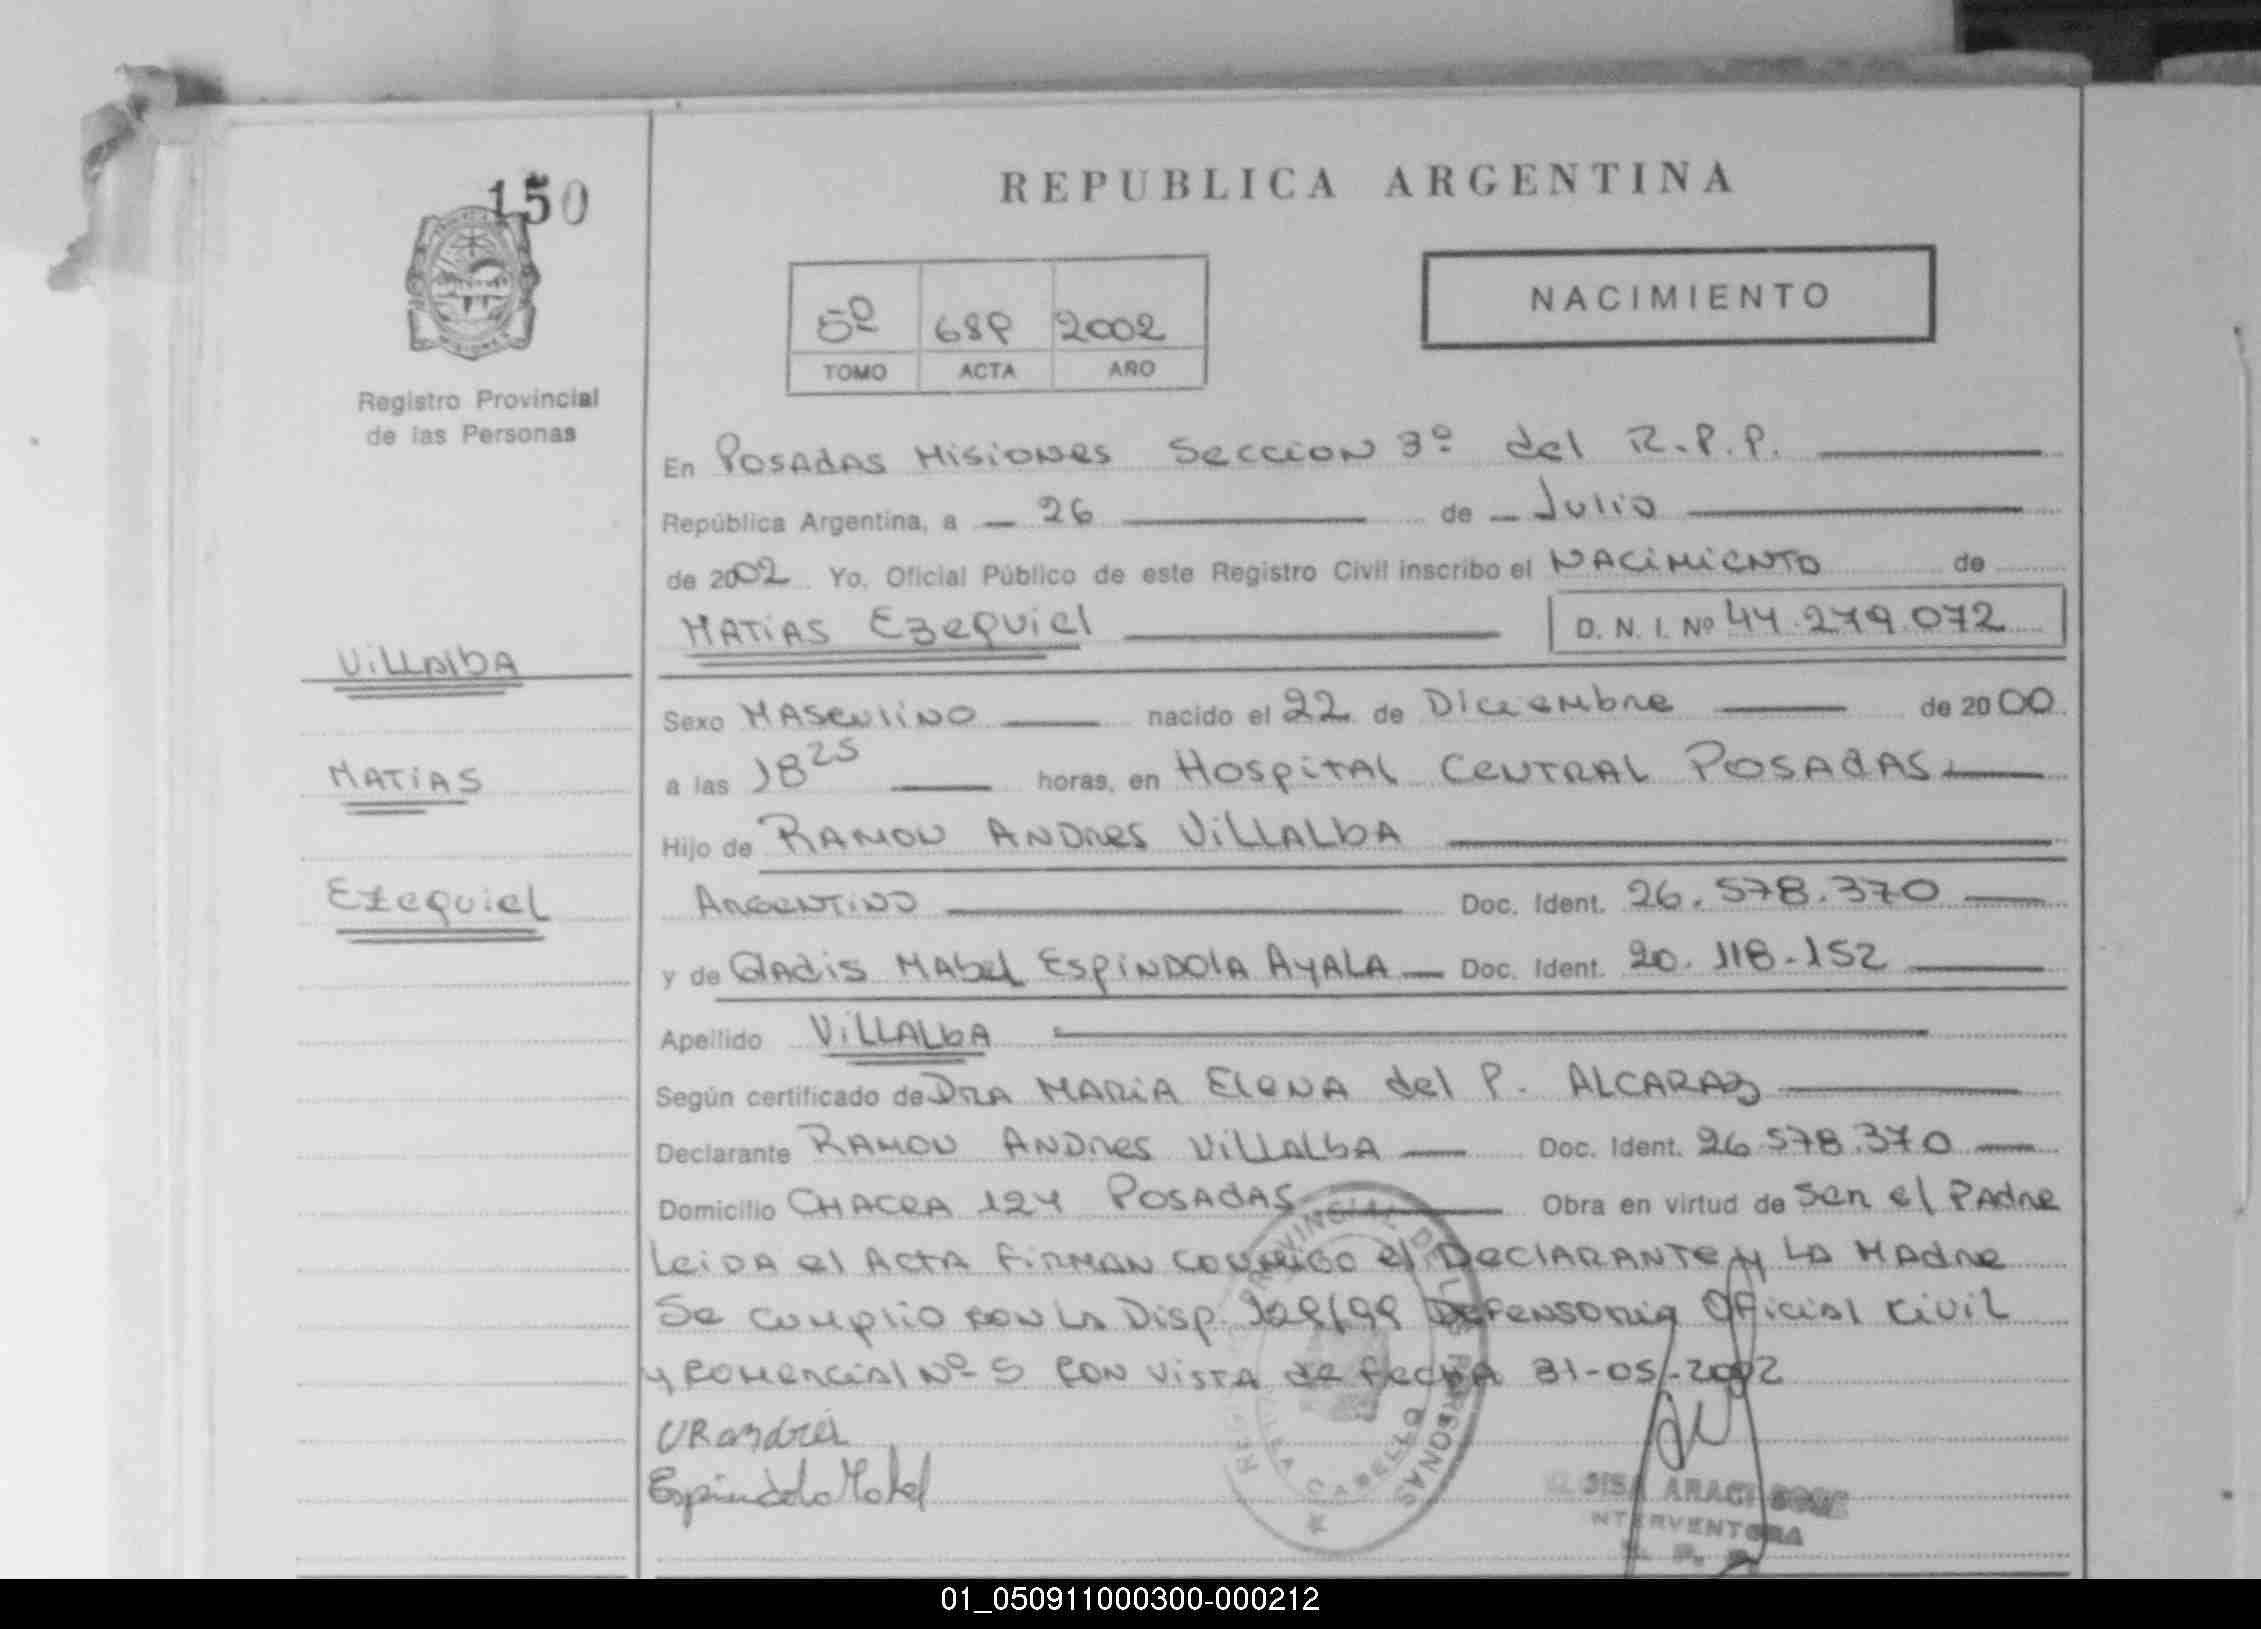 150
REPUBLICA ARGENTINA
NACIMIENTO
5º 689 2002
TOMO ACTA AÑO
Registro Provincial
de las Personas
En Posadas Misiones Seccion 3º del R.P.P.
República Argentina, a 26 de Julio
de 2002 Yo, Oficial Público de este Registro Civil inscribo el Nacimiento de
Matias Ezequiel D. N. I. Nº 44.279.072
Villalba
Sexo Masculino nacido el 22 de Diciembre de 2000
Matias
a las 18 25 horas, en Hospital Central Posadas
Hijo de Ramon Andres Villalba
Ezequiel
Argentino Doc. Ident. 26.578.370
y de Gladis Mabel Espindola Ayala Doc. Ident. 20.118.152
Apellido Villalba
Según certificado de Dra Maria Elena del P. Alcaraz
Declarante Ramon Andres Villalba Doc. Ident. 26.578.370
Domicilio Chacra 124 Posadas Obra en virtud de ser el Padre
Leida el Acta firman conmigo el Declarante y la Madre
Se cumplio con la Disp. Defensoria Oficial Civil
y Comercial Nº 5 con vista de fecha 31-05-2002
Espindola Mabel
PROVINCIAL DE LAS PERSONAS
INTERVENTORA
01_050911000300-000212